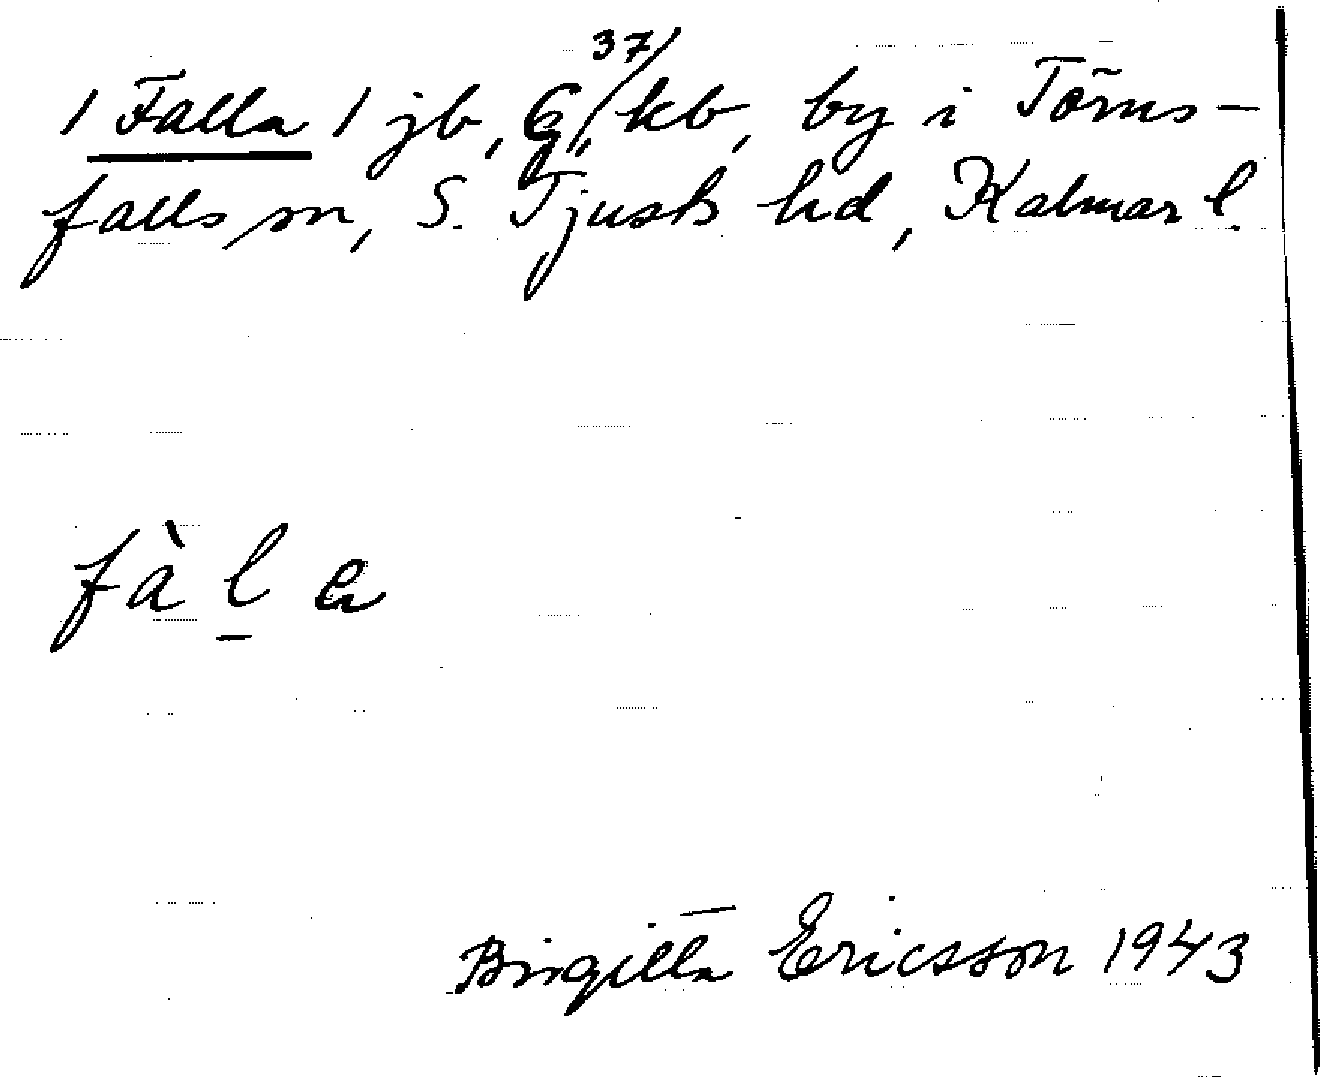 / Falla / jb, G 37/ kb, by i Törns-
falls sn, S. Tjusts hd, Kalmar l.
fàl̲a
Birgitta Ericsson 1943